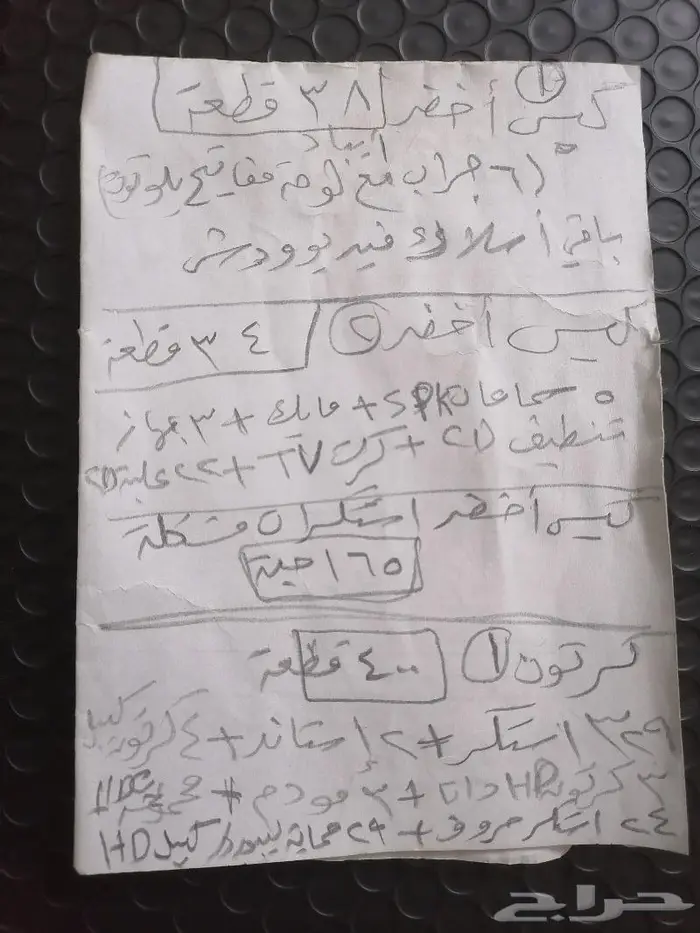 كيس أخضر ① ٣٨ قطعة
ايباد
(٦ جراب مع لوحة مفاتيح بلوتوث)
باقي أسلاك فيديو ودش
كيس أخضر ٣٤ قطعة
٥ سماعات SPK + مايك + ٣ جهاز
تنظيف CD + كرت TV +
كيس أخضر استكرات مشكلة
١٦٥ حبة
كرتون ① ٤٠٠ قطعة
استكر + ٢ إستاند + ٤ كرتون كيبل
٣ كرتون HP + ٣ مودم +
٢٤ استكر حروف + كيبل HD
حراج